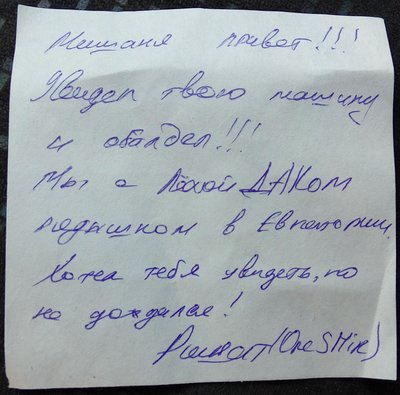 Мишаня привет!!!
Увидел твою машину
и обалдел!!!
Мы с Лёхой ДАКом
в Евпатории
Хотел тебя увидеть, но
не дождался!
Ринат (OneSMix)